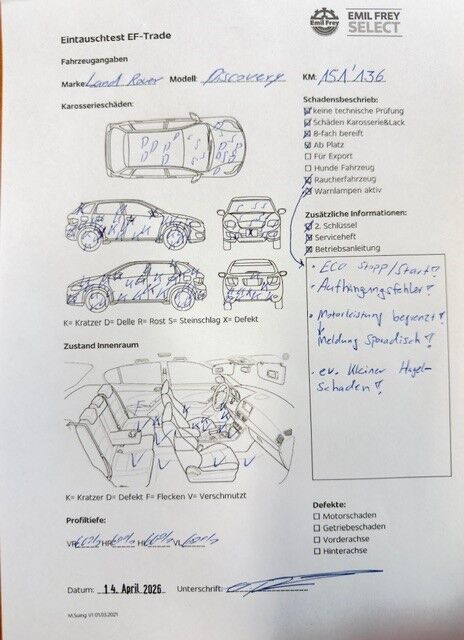 Emil Frey
EMIL FREY
SELECT
Eintauschtest EF-Trade
Fahrzeugangaben
Marke: Land Rover Modell: Discovery KM: 151'136
Karosserieschäden:
Schadensbeschrieb:
keine technische Prüfung
Schäden Karosserie&Lack
8-fach bereift
Ab Platz
Für Export
Hunde Fahrzeug
Raucherfahrzeug
Warnlampen aktiv
Zusätzliche Informationen:
2. Schlüssel
Serviceheft
Betriebsanleitung
• ECO Stopp/Start!
• Aufhängungsfehler!
• Motorleistung begrenzt!
Meldung Sporadisch!
• ev. Kleiner Hagel-
Schaden!
K= Kratzer D= Delle R= Rost S= Steinschlag X= Defekt
Zustand Innenraum
K= Kratzer D= Defekt F= Flecken V= Verschmutzt
Profiltiefe:
VR 60% HR 60% HL 60% VL 60%
Defekte:
Motorschaden
Getriebeschaden
Vorderachse
Hinterachse
Datum: 14. April 2026 Unterschrift:
M.Suing V1 01.03.2021